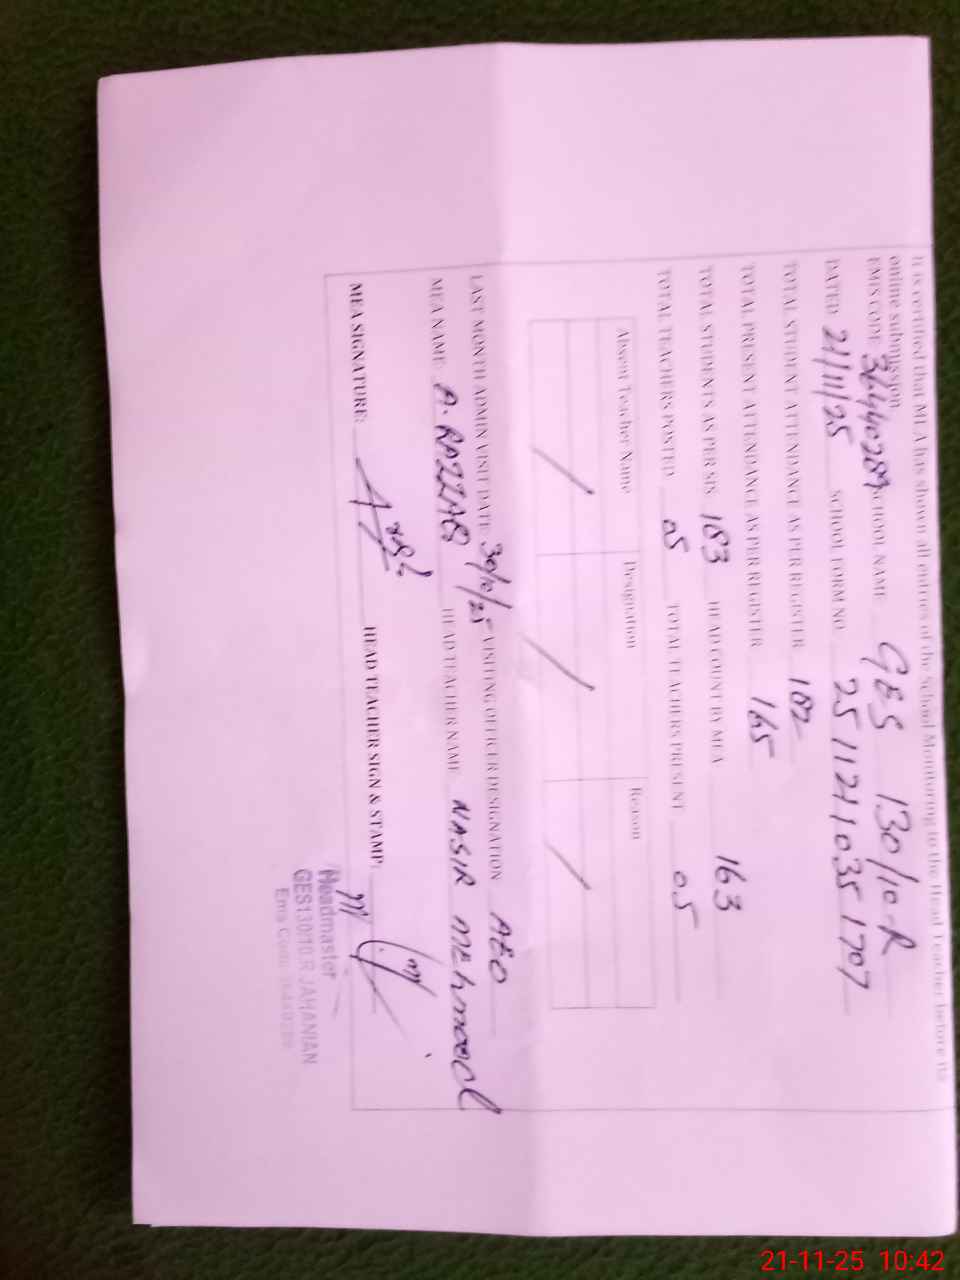 It is certified that MEA has shown all entries of the School Monitoring to the Head Teacher before its
online submission.
EMIS CODE 36440289 SCHOOL NAME GES 130/10-R
DATED 21/11/25 SCHOOL FORM NO. 25112110351707
TOTAL STUDENT ATTENDANCE AS PER REGISTER 182
TOTAL PRESENT ATTENDANCE AS PER REGISTER 165
TOTAL STUDENTS AS PER SIS 183 HEAD COUNT BY MEA 163
TOTAL TEACHERS POSTED 05 TOTAL TEACHERS PRESENT 05
Absent Teacher Name Designation Reason
LAST MONTH ADMIN VISIT DATE 30/10/25 VISITING OFFICER DESIGNATION AEO
MEA NAME A. RAZZAQ HEAD TEACHER NAME NASIR MEHMOOD
MEA SIGNATURE: HEAD TEACHER SIGN & STAMP:
Headmaster
GES130/10.R JAHANIAN
Ems Code
21-11-25 10:42